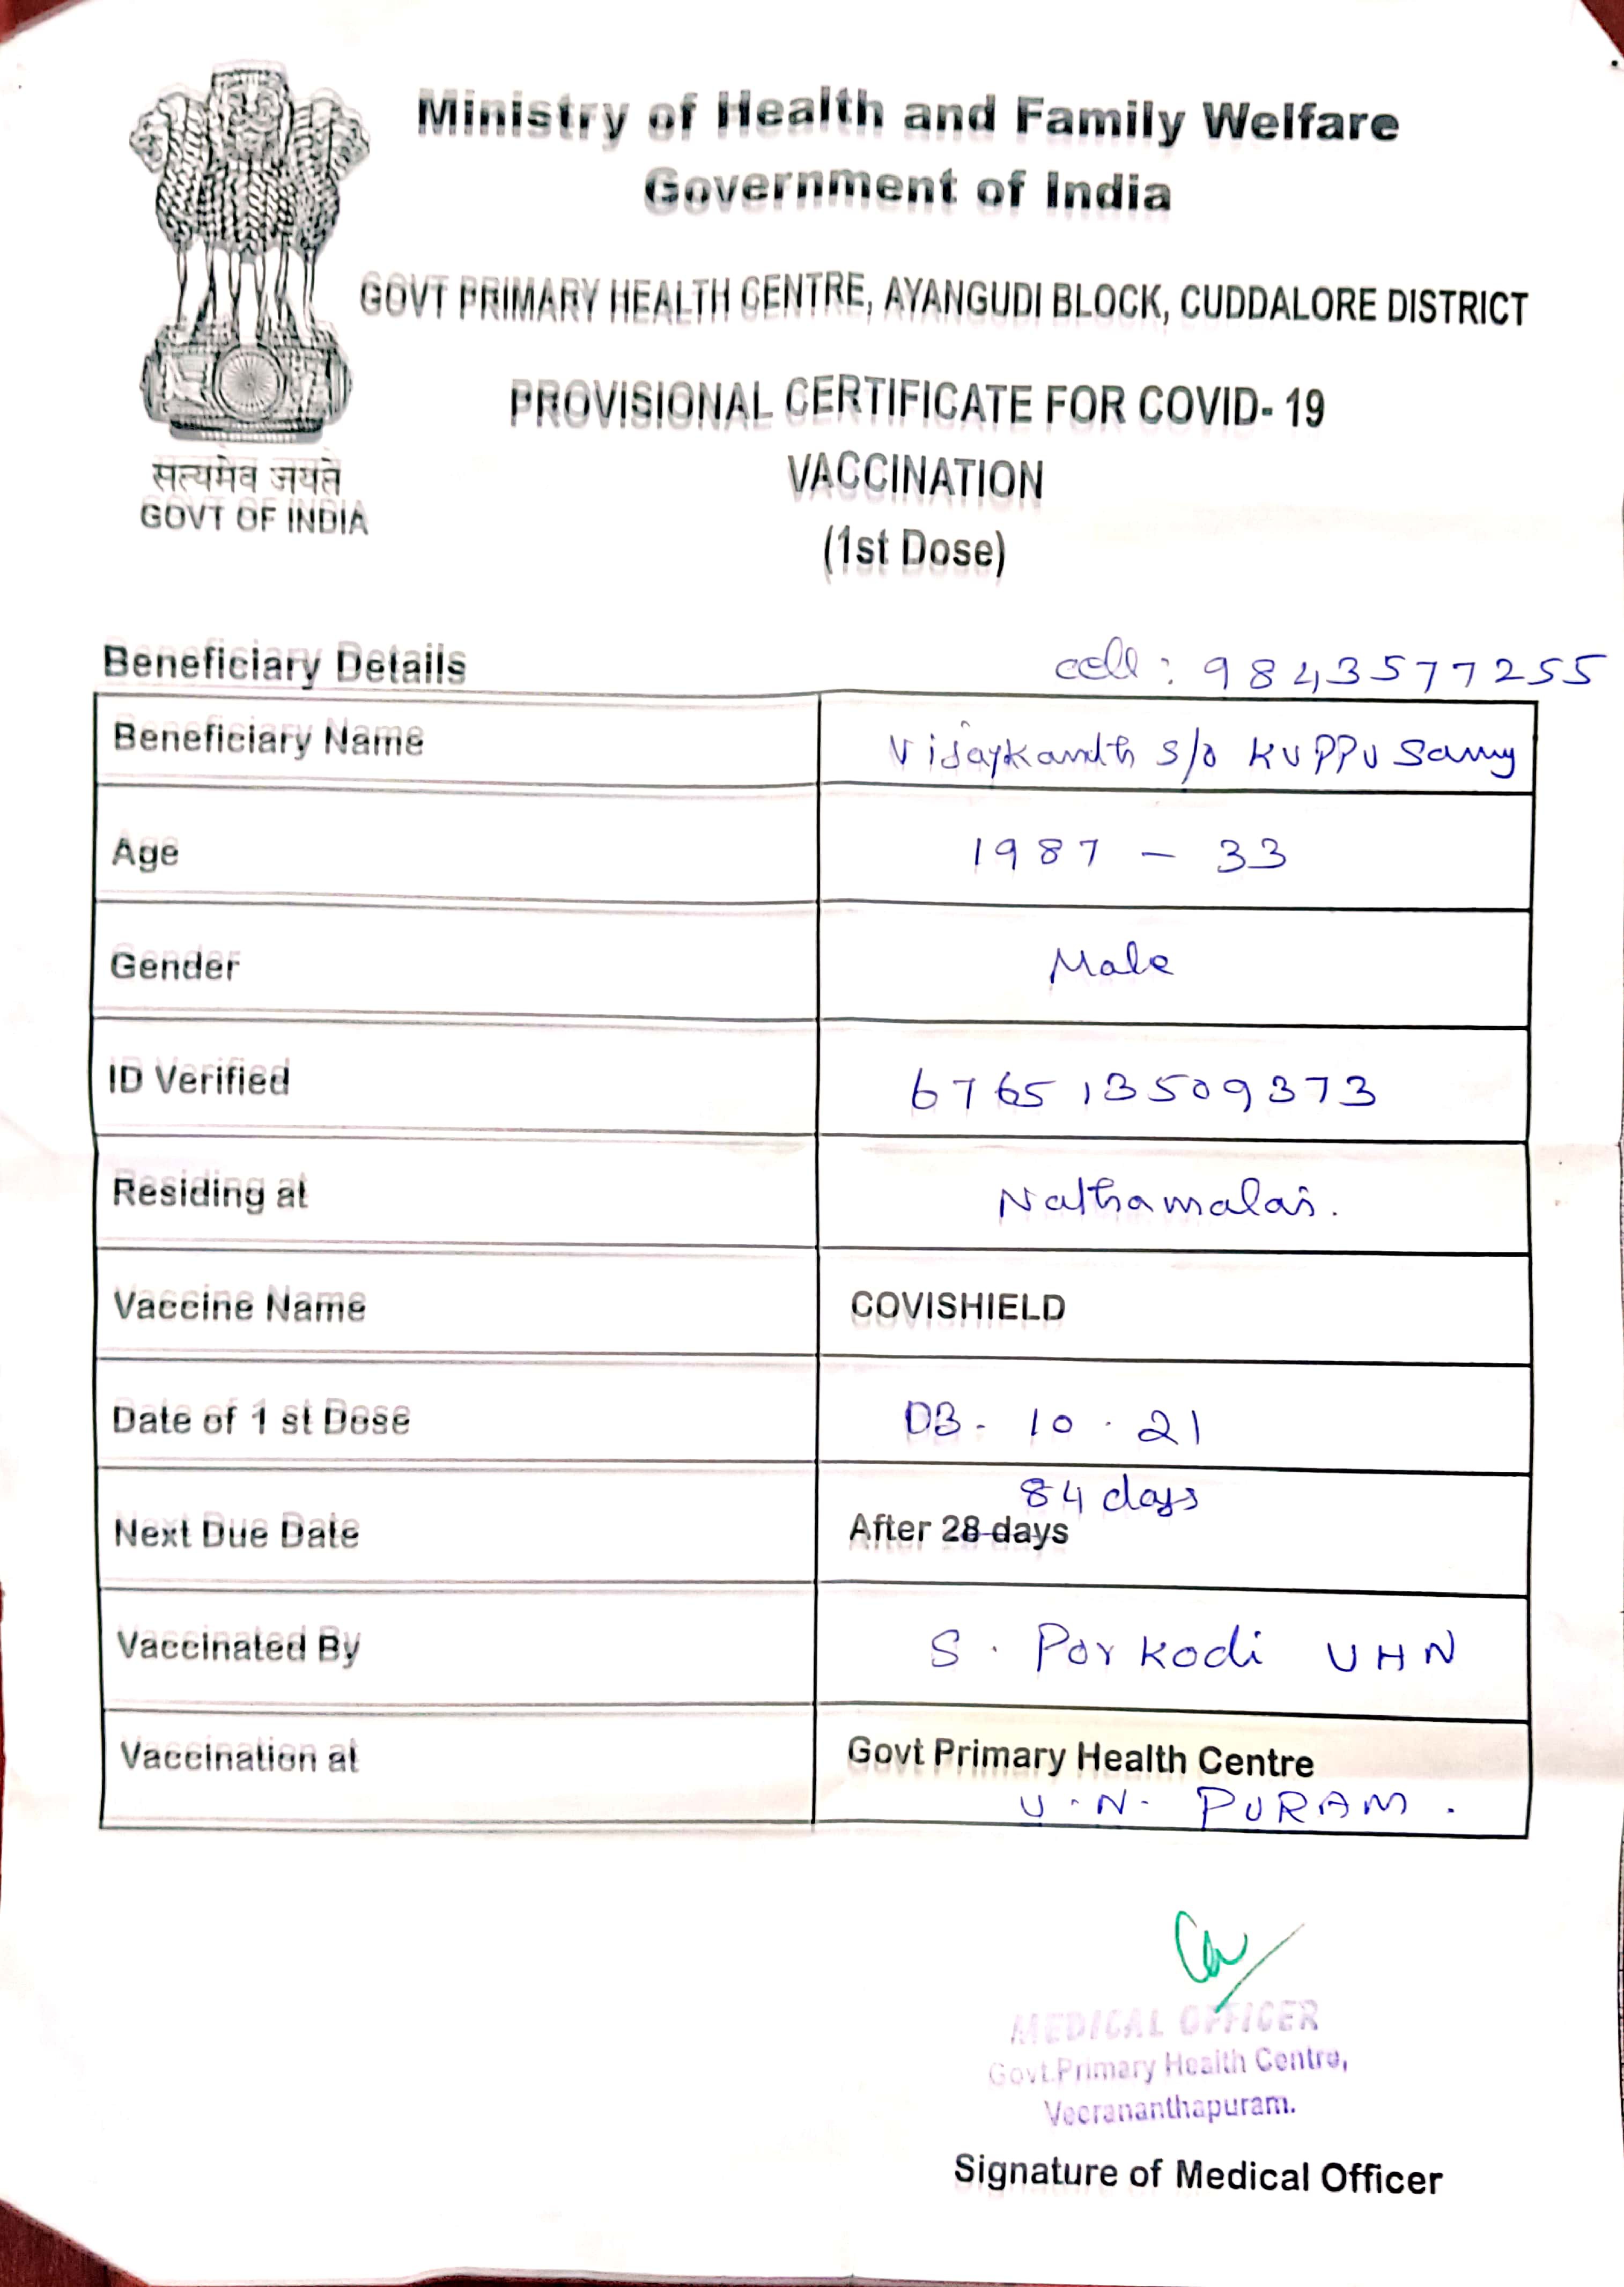 Ministry of Health and Family Welfare
Government of India
GOVT PRIMARY HEALTH CENTRE, AYANGUDI BLOCK, CUDDALORE DISTRICT
PROVISIONAL CERTIFICATE FOR COVID- 19
VACCINATION
(1st Dose)
सत्यमेव जयते
GOVT OF INDIA
Beneficiary Details cell: 9843577255
Beneficiary Name Vijaykandth s/o KUPPUSamy
Age 1987 - 33
Gender Male
ID Verified 676513509373
Residing at Nathamalai.
Vaccine Name COVISHIELD
Date of 1 st Dose 03. 10 . 21
84 days
Next Due Date After 28 days
Vaccinated By S. Porkodi UHN
Vaccination at Govt Primary Health Centre
U.N. PURAM.
MEDICAL OFFICER
Govt.Primary Health Centre,
Veerananthapuram.
Signature of Medical Officer